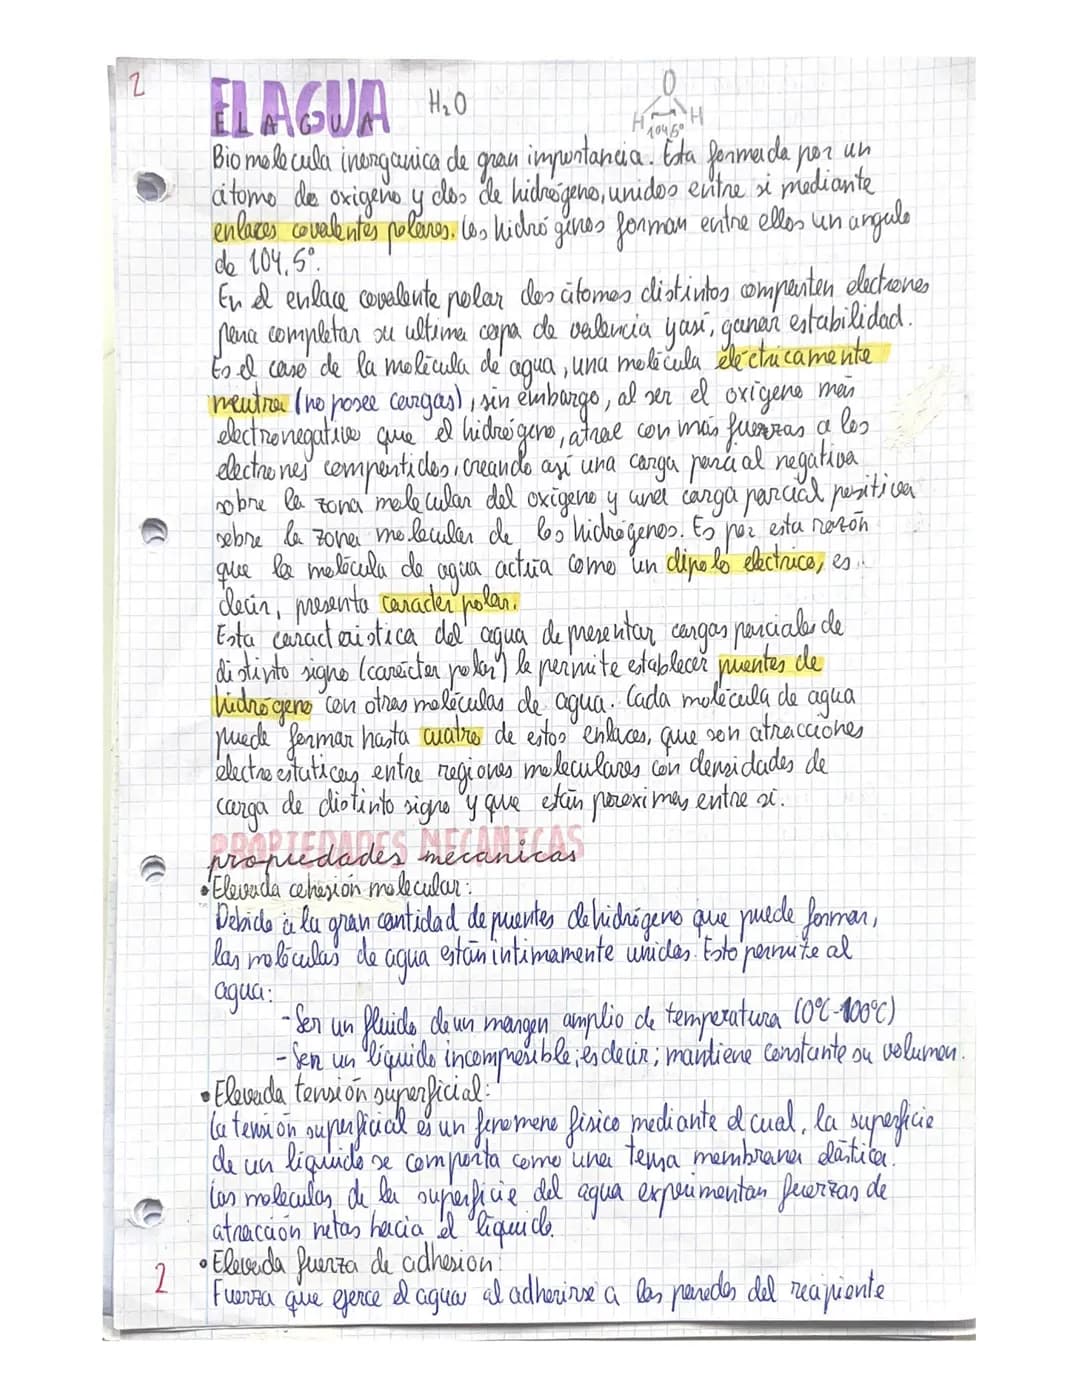 2
EL AGUA H₂O
E L A G U A
O
H H
104,5°
Biomolecula inorganica de gran importancia. Esta formada por un
átomo de oxigeno y dos de hidrógeno, unidos entre si mediante
enlaces covalentes polares. Los hidrógenos forman entre ellos un angulo
de 104,5°.
En el enlace covalente polar dos átomos distintos comparten electrones
para completar su ultima capa de valencia y así, ganar estabilidad.
Es el caso de la molécula de agua, una molécula eléctricamente
neutra (no posee cargas), sin embargo, al ser el oxígeno más
electronegativo que el hidrógeno, atrae con más fuerzas a los
electrones compartidos, creando así una carga parcial negativa
sobre la zona molecular del oxígeno y una carga parcial positiva
sobre la zona molecular de los hidrógenos. Es por esta razón
que la molécula de agua actúa como un dipolo electrico, es
decir, presenta caracter polar.
Esta caracteristica del agua de presentar cargas parciales de
distinto signo (carácter polar) le permite establecer puentes de
hidrógeno con otras moléculas de agua. Cada molécula de agua
puede formar hasta cuatro de estos enlaces, que son atracciones
electroestáticas entre regiones moleculares con densidades de
carga de distinto signo y que están poroximas entre si.
PROPIEDADES MECANICAS
propiedades mecanicas
• Elevada cohesión molecular:
Debido a la gran cantidad de puentes de hidrógeno que puede formar,
las moléculas de agua están intimamente unidas. Esto permite al
agua:
- Ser un fluido de un margen amplio de temperatura (0°C-100°C)
- Ser un líquido incompresible; es decir; mantiene constante su volumen.
• Elevada tensión superficial:
La tensión superficial es un fenomeno físico mediante el cual, la superficie
de un líquido se comporta como una tensa membrana elástica.
Las moleculas de la superficie del agua experimentan fuerzas de
atracción netas hacia el líquido.
• Elevada fuerza de adhesion:
Fuerza que ejerce el agua al adherirse a las paredes del recipiente
2